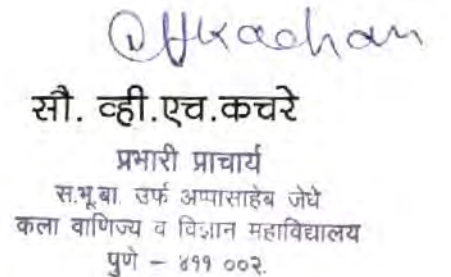 सौ. व्ही.एच.कचरे
प्रभारी प्राचार्य
स.भू.बा. उर्फ अप्पासाहेब जेधे
कला वाणिज्य व विज्ञान महाविद्यालय
पुणे – ४११ ००२.